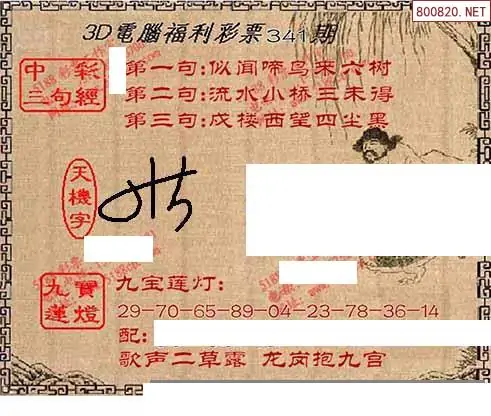 800820.NET
3D電腦福利彩票341期
中彩
三句經
第一句:似闻啼鸟来六树
第二句:流水小桥三未得
第三句:戍楼西望四尘黑
天機字
九寶
蓮燈
九宝莲灯:
29-70-65-89-04-23-78-36-14
配:
歌声二草露 龙岗抱九宫